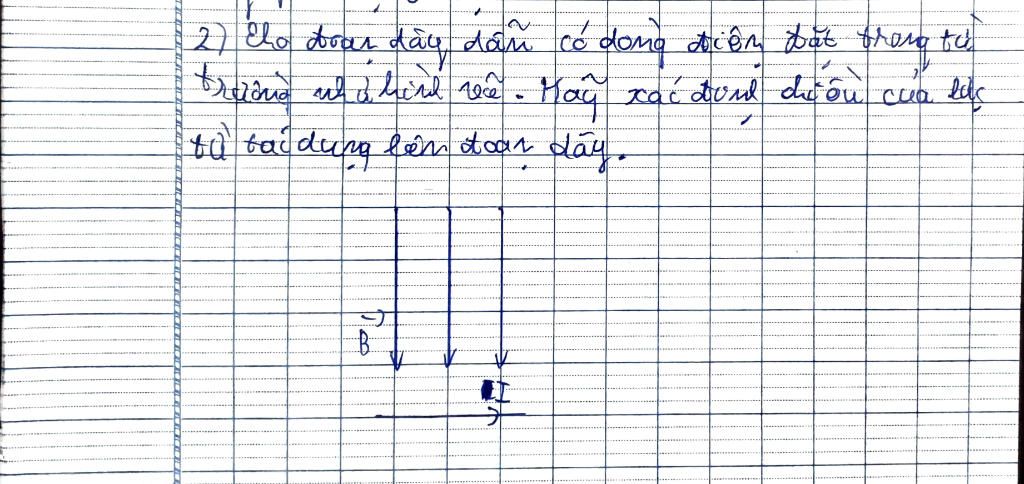 2) Cho đoạn dây dẫn có dòng điện đặt trong từ
trường như hình vẽ. Hãy xác định chiều của lực
từ tác dụng lên đoạn dây.
B
I